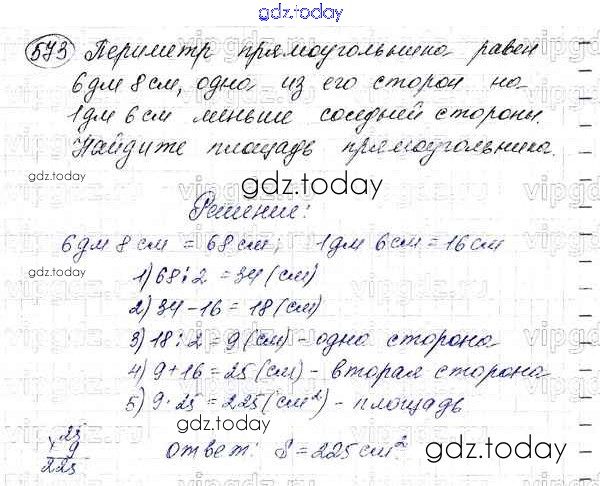 gdz.today
573 Периметр прямоугольника равен
6 дм 8 см, одна из его сторон на
1 дм 6 см меньше соседней стороны.
Найдите площадь прямоугольника.
gdz.today
Решение:
6 дм 8 см = 68 см; 1 дм 6 см = 16 см
gdz.today
1) 68 : 2 = 34 (см)
2) 34 - 16 = 18 (см)
3) 18 : 2 = 9 (см) - одна сторона
4) 9 + 16 = 25 (см) - вторая сторона
5) 9 · 25 = 225 (см²) - площадь
25
× 9
225
ответ: S = 225 см².
gdz.today